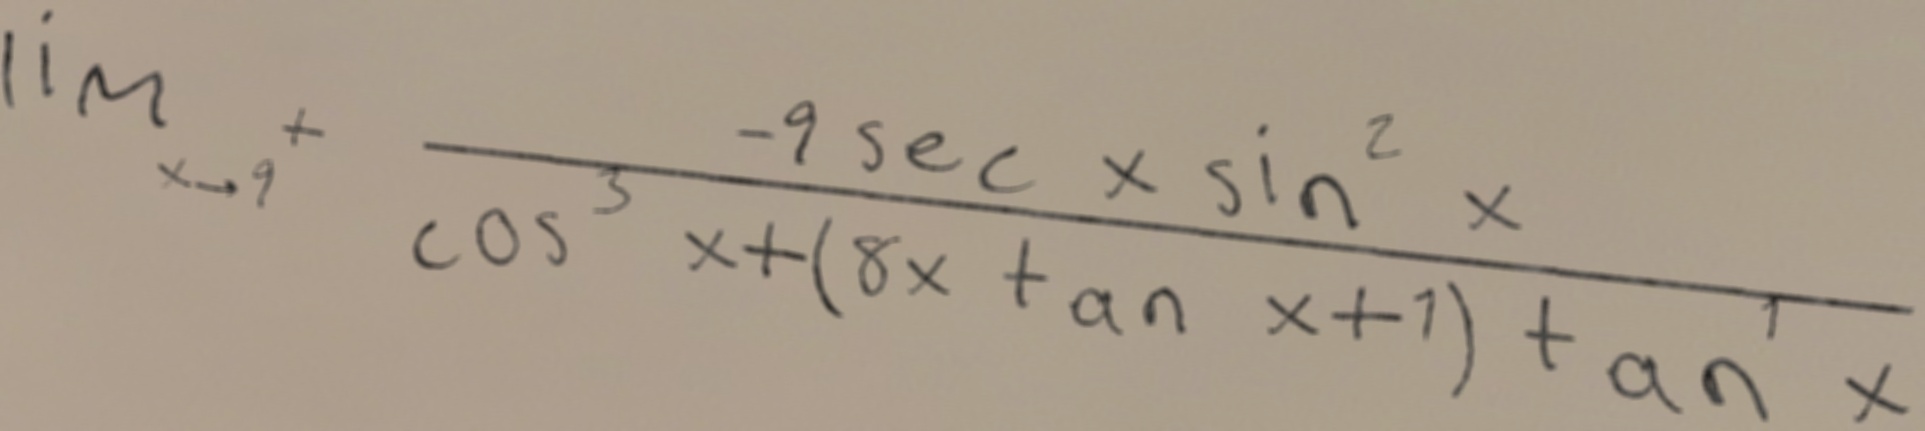 lim x→9⁺ (-9 sec x sin² x) / (cos³ x+(8x tan x+1) tan¹ x)